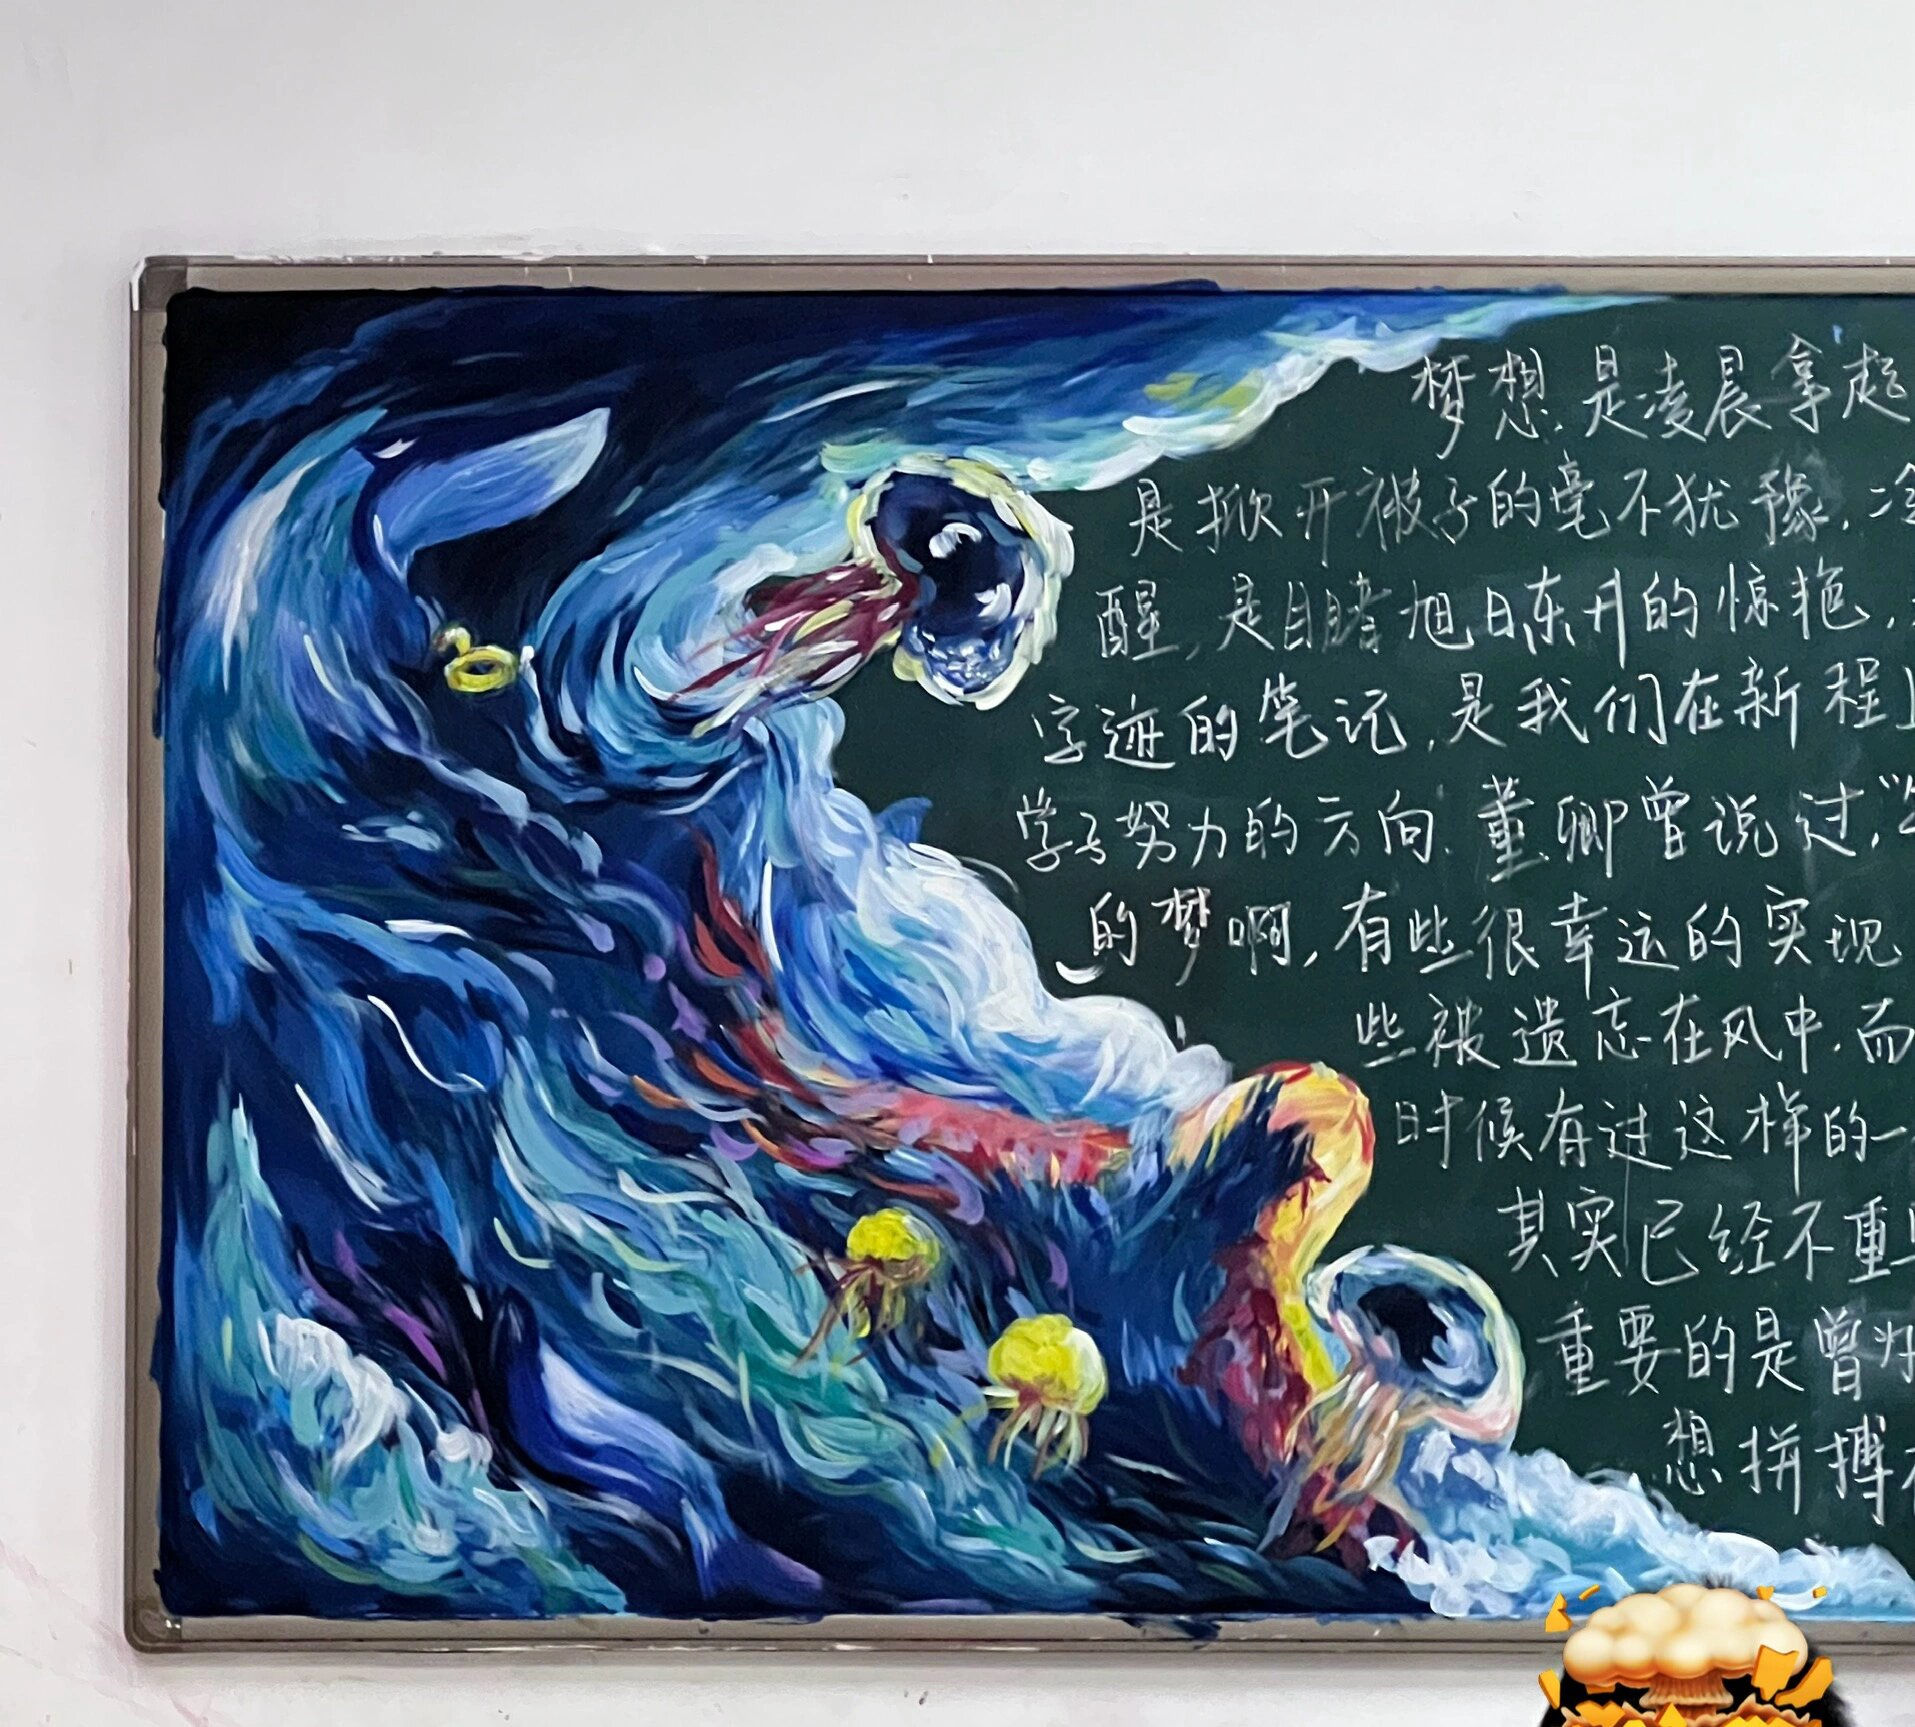 梦想,是凌晨拿起
是掀开被子的毫不犹豫,冷
醒,是目睹旭日东升的惊艳,
字迹的笔记,是我们在新程上
学子努力的方向.董卿曾说过,“
的梦啊,有些很幸运的实现
些被遗忘在风中.而
时候有过这样的一
其实已经不重要
重要的是曾为
想拼搏